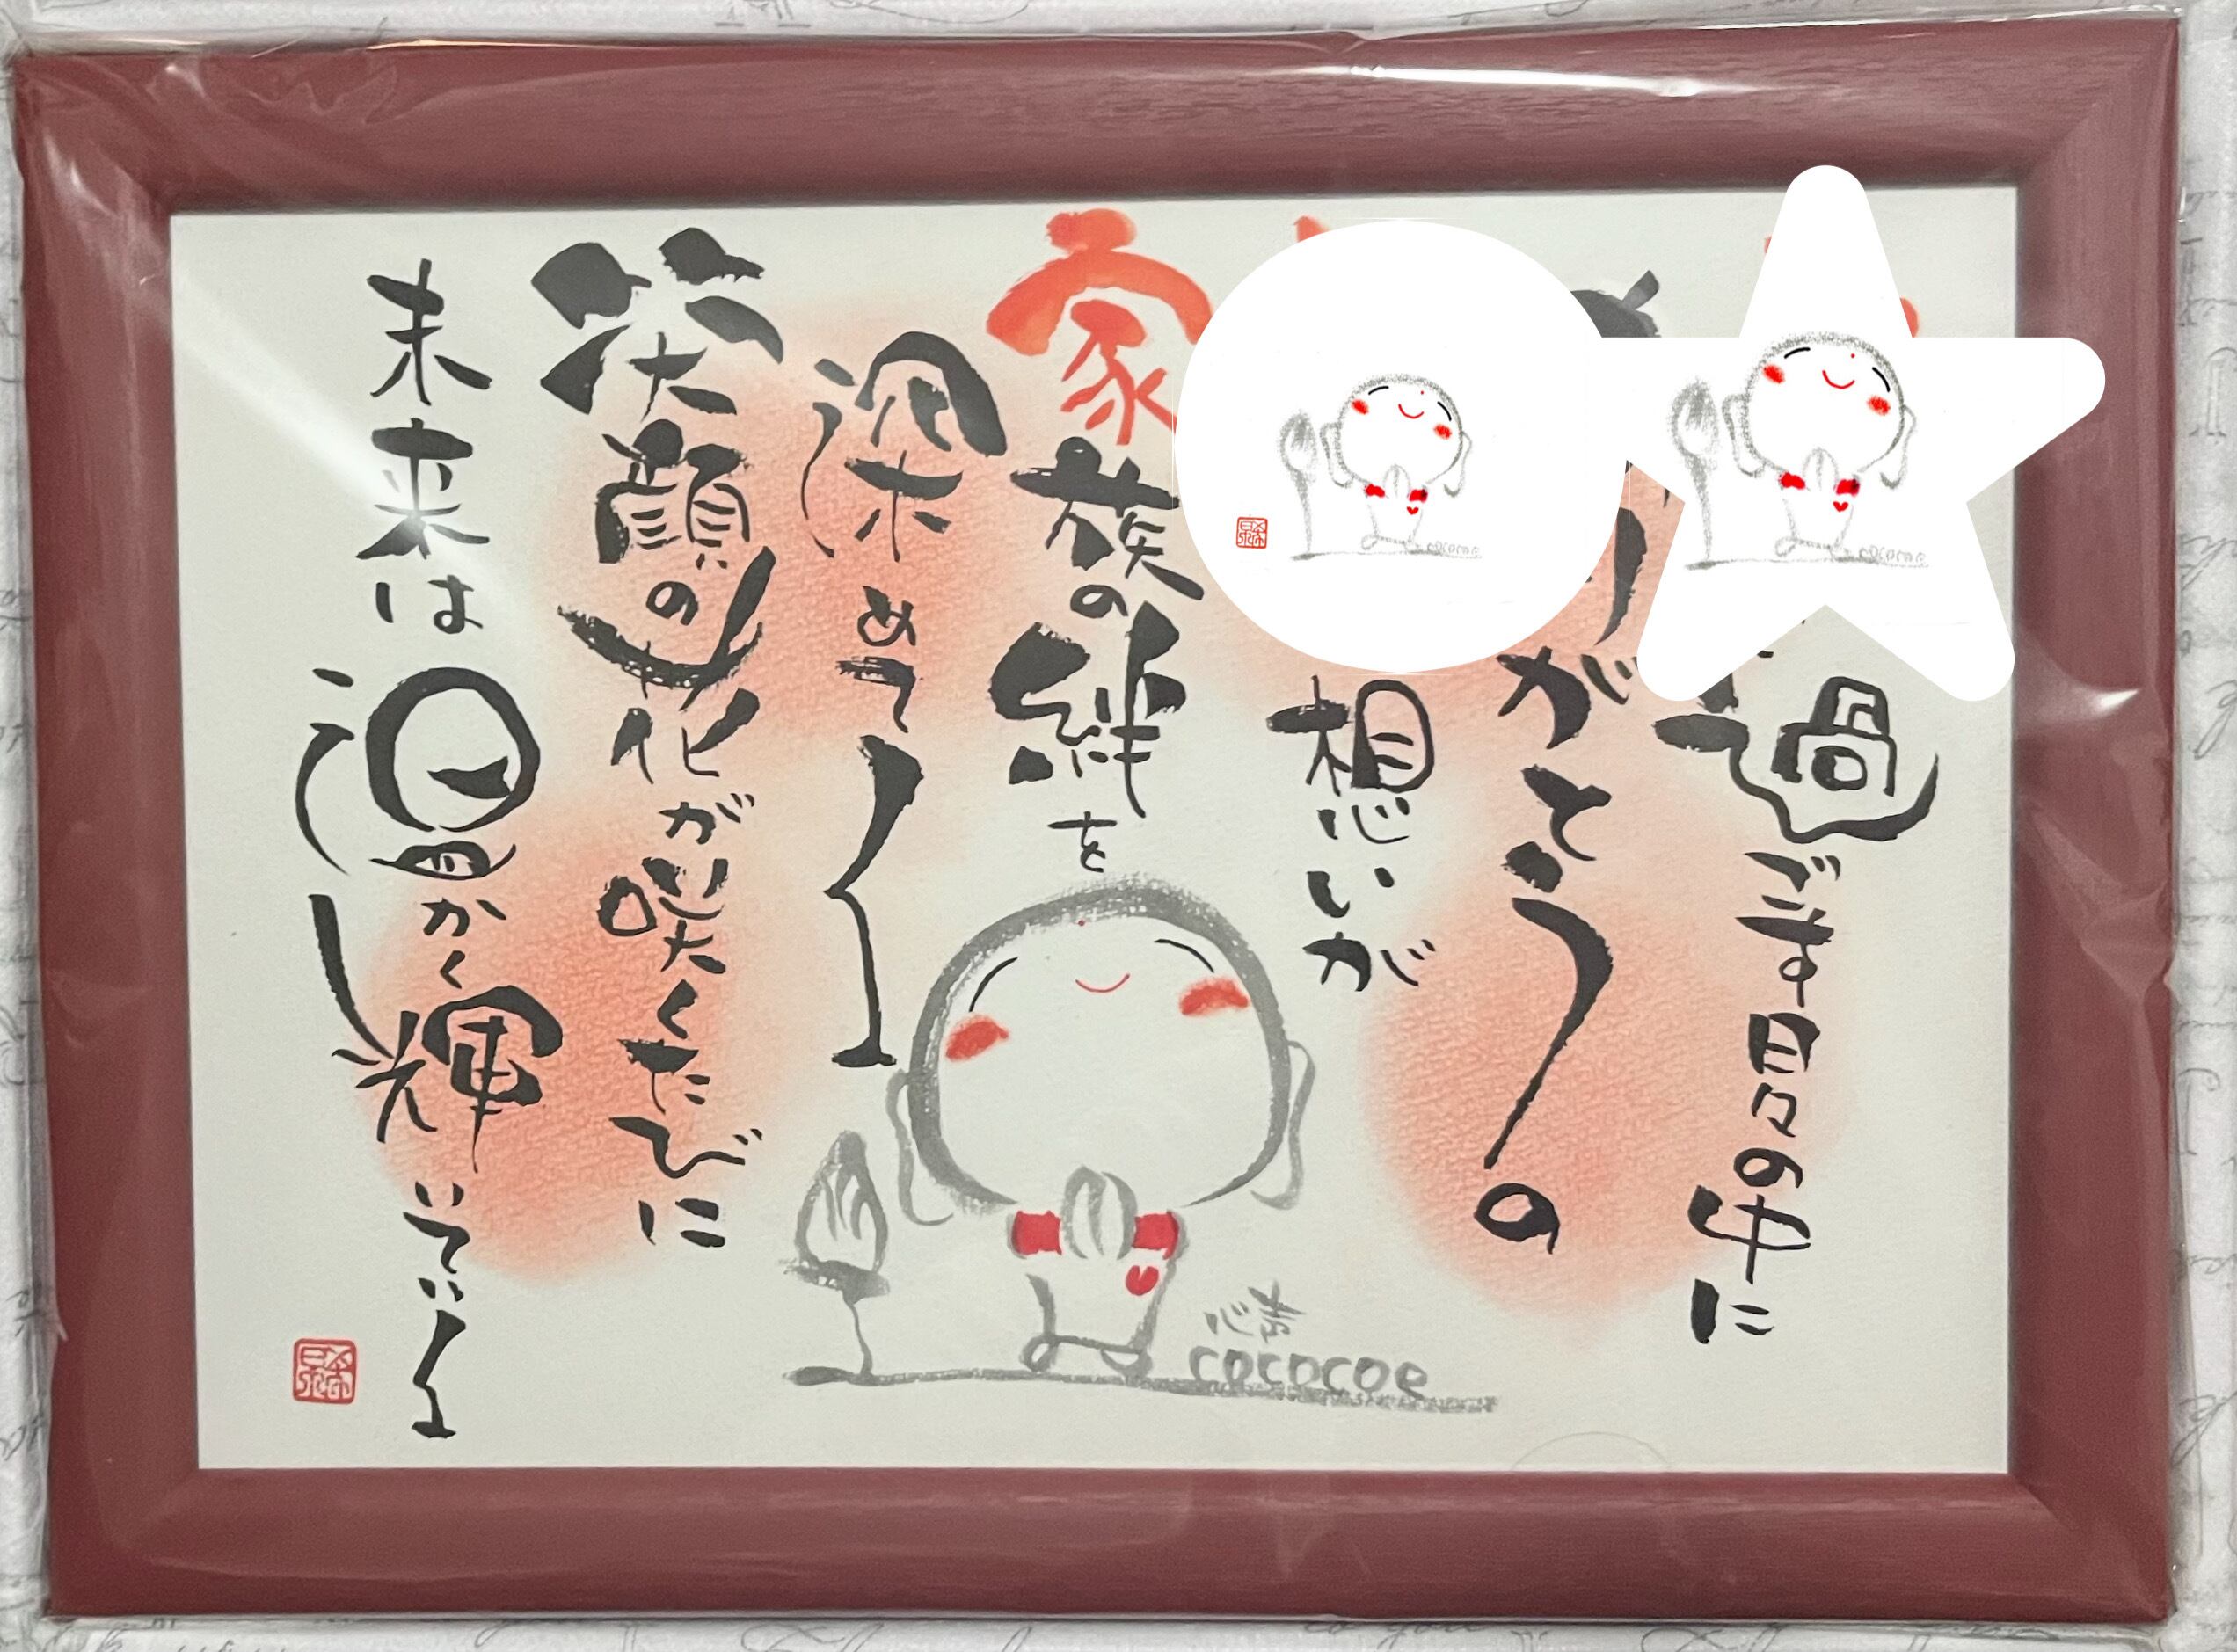 過ごす日々の中に
がとうの
想いが
家族の絆を
深めて
笑顔の花が咲くたびに
未来は温かく輝いている
心声
cococoe
cococoe
cococoe